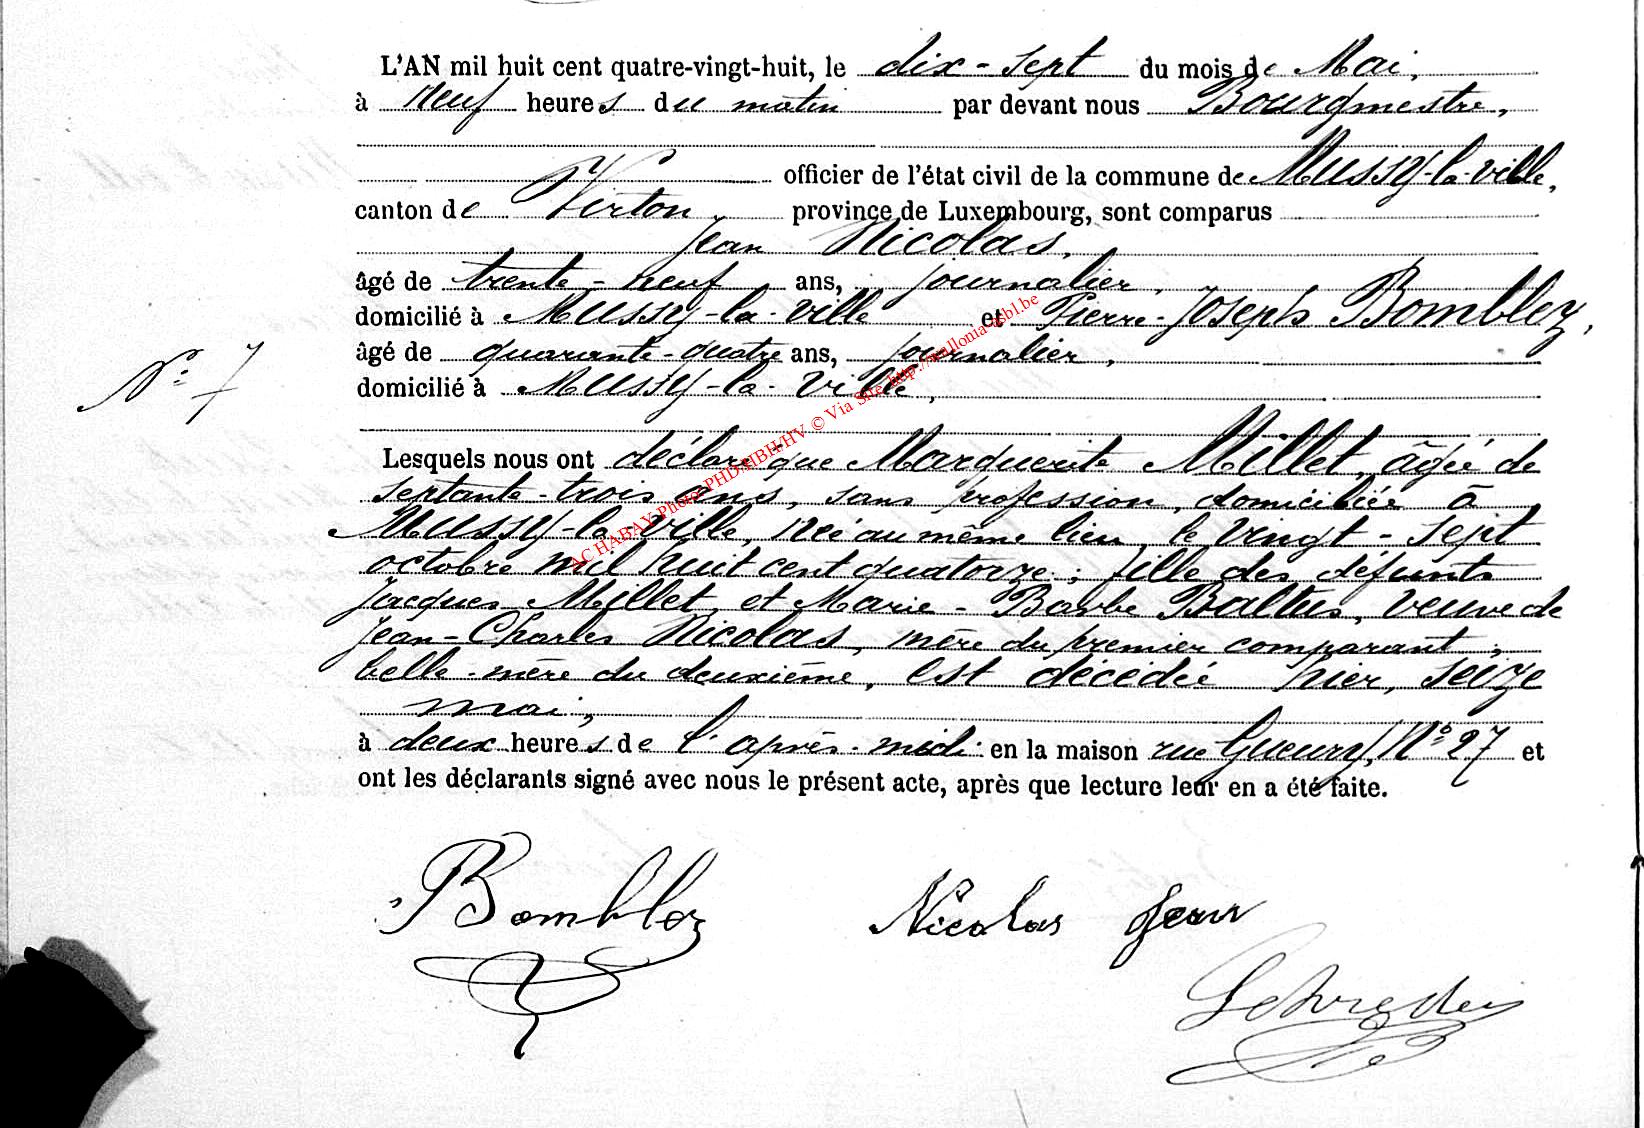 L'AN mil huit cent quatre-vingt-huit, le dix-sept du mois de Mai,
à neuf heures du matin par devant nous Bourgmestre,
officier de l'état civil de la commune de Mussy-la-ville,
canton de Virton, province de Luxembourg, sont comparus
Jean Nicolas,
âgé de trente-neuf ans, journalier,
domicilié à Mussy-la-ville et Pierre-Joseph Bomblez,
âgé de quarante-quatre ans, journalier,
N° 7
domicilié à Mussy-la-ville,
Lesquels nous ont déclaré que Marguerite Millet, âgée de
septante-trois ans, sans profession, domiciliée à
Mussy-la-ville, née au même lieu, le vingt-sept
octobre mil huit cent quatorze; fille des défunts
Jacques Millet, et Marie-Barbe Baltus, veuve de
Jean-Charles Nicolas, mère du premier comparant;
belle-mère du deuxième, est décédée hier, seize
mai,
à deux heures de l'après-midi en la maison rue Gueury, N° 27 et
ont les déclarants signé avec nous le présent acte, après que lecture leur en a été faite.
Bomblez Nicolas Jean
AC HABAY Photo PHD/HBH/HV © Via Site http://wallonia-asbl.be